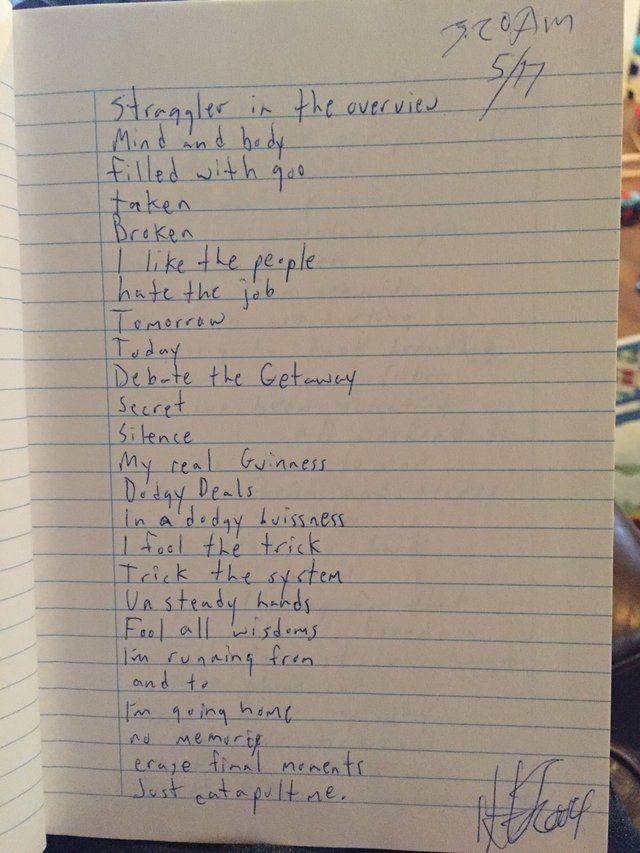 3:20Am
5/17
Straggler in the overview
Mind and body
filled with goo
taken
Broken
I like the people
hate the job
Tomorrow
Today
Debate the Getaway
Secret
Silence
My real Guinness
Dodgy Deals
In a dodgy buissness
I fool the trick
Trick the system
Unsteady hands
Fool all wisdoms
I'm running from
and to
I'm going home
no memories
erase final moments
Just catapult me.